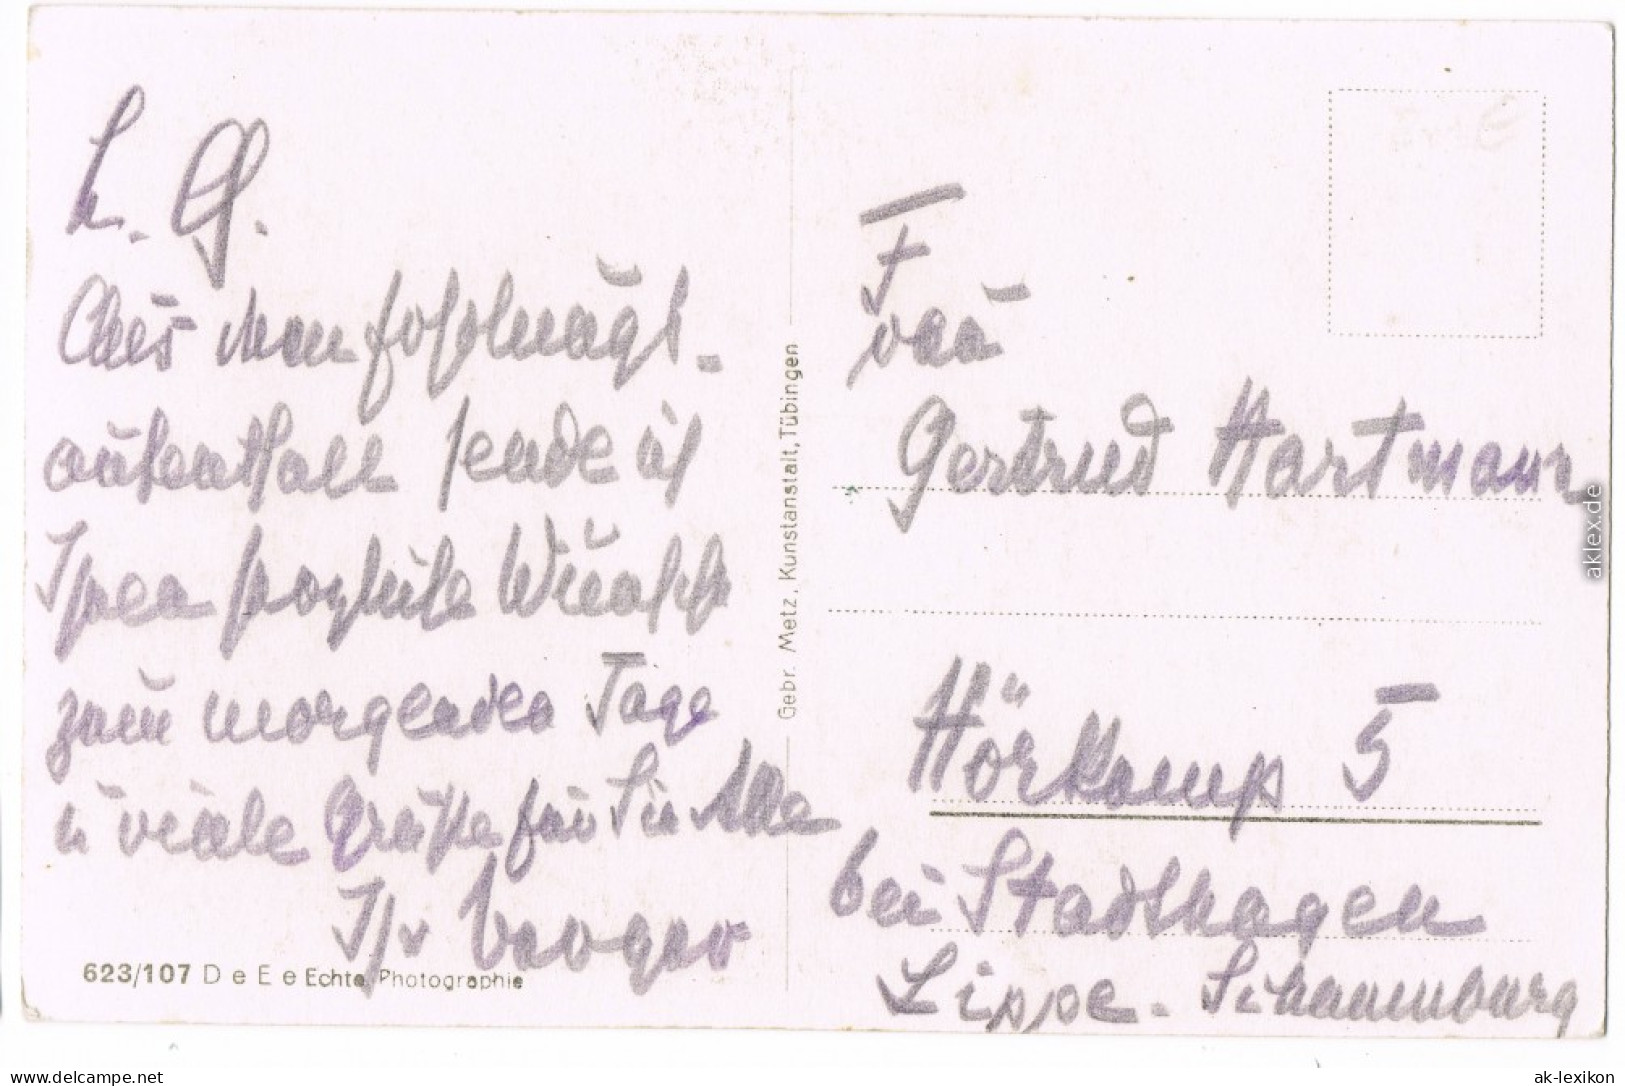 L. G.
Aus dem Erholungs-
aufenthalt sende ich
Ihnen herzliche Wünsche
zum morgenden Tage
u viele Grüße für Sie Alle
Ihr
623/107 D e E e Echte Photographie
Gebr. Metz, Kunstanstalt, Tübingen
Frau
Gertrud Hartmann
Hörkamp 5
bei Stadthagen
Lippe-Schaumburg
aklex.de
www.delcampe.net
ak-lexikon